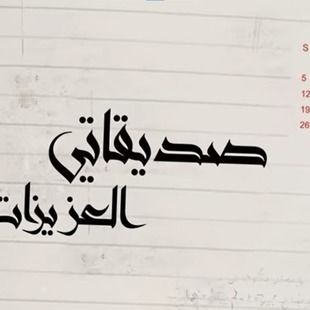 S
5
12
19
26
صديقاتي
العزيزات